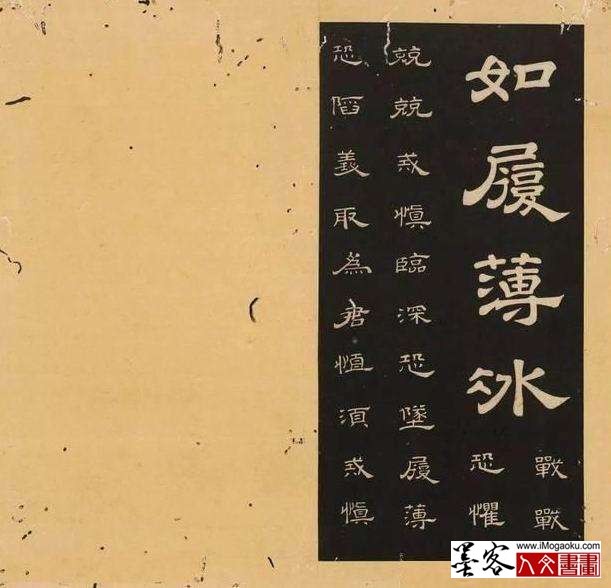 如履薄冰
戰戰
恐懼
兢兢戒慎臨深恐墜履薄
恐陷義取為君恒須戒慎
墨客
www.iMogaoku.com
人文書畫